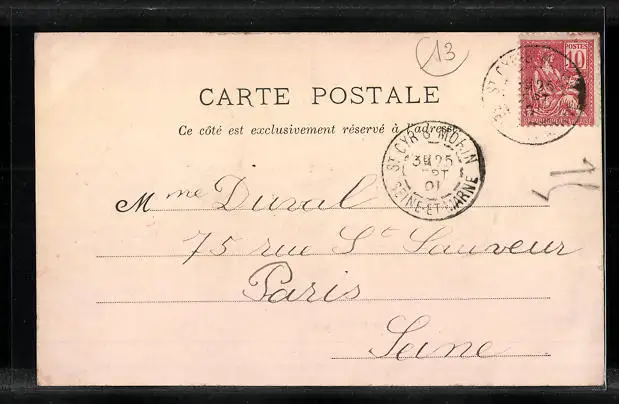 13
POSTES
10
CARTE POSTALE
Ce côté est exclusivement réservé à l'adresse
ST CYR S. MORIN
3E 25
SEPT
01
SEINE-ET-MARNE
Mme Duval
75 rue St Sauveur
Paris
Seine